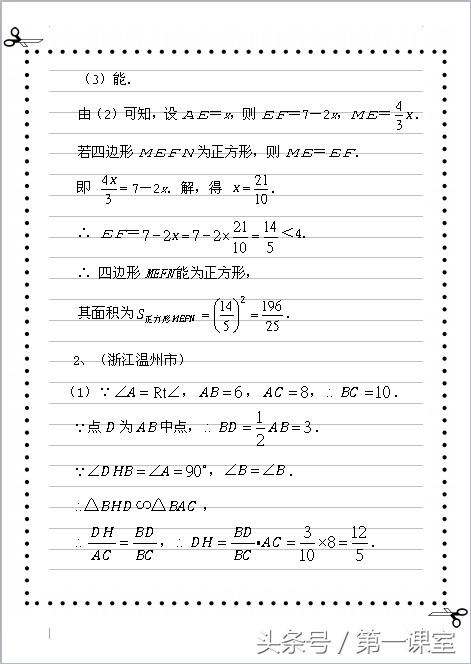 （3）能．
由（2）可知，设 AE＝x，则 EF＝7－2x，ME＝4/3 x．
若四边形 MEFN 为正方形，则 ME＝EF．
即 4x/3＝7－2x．解，得 x＝21/10．
∴ EF＝7－2x＝7－2×21/10＝14/5＜4．
∴ 四边形 MEFN能为正方形，
其面积为S正方形MEFN＝(14/5)²＝196/25．
2、（浙江温州市）
（1）∵∠A＝Rt∠，AB＝6，AC＝8，∴BC＝10．
∵点 D 为 AB 中点，∴BD＝1/2 AB＝3．
∵∠DHB＝∠A＝90°，∠B＝∠B．
∴△BHD∽△BAC，
∴DH/AC＝BD/BC，∴DH＝BD/BC•AC＝3/10×8＝12/5．
头条号 / 第一课堂